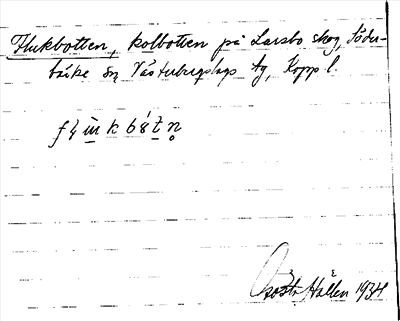 Flukbotten, kolbotten på Larsbo skog, Söder-
bärke sn Västerbergslags tg, Kopp l.
Gösta Hallén 1934